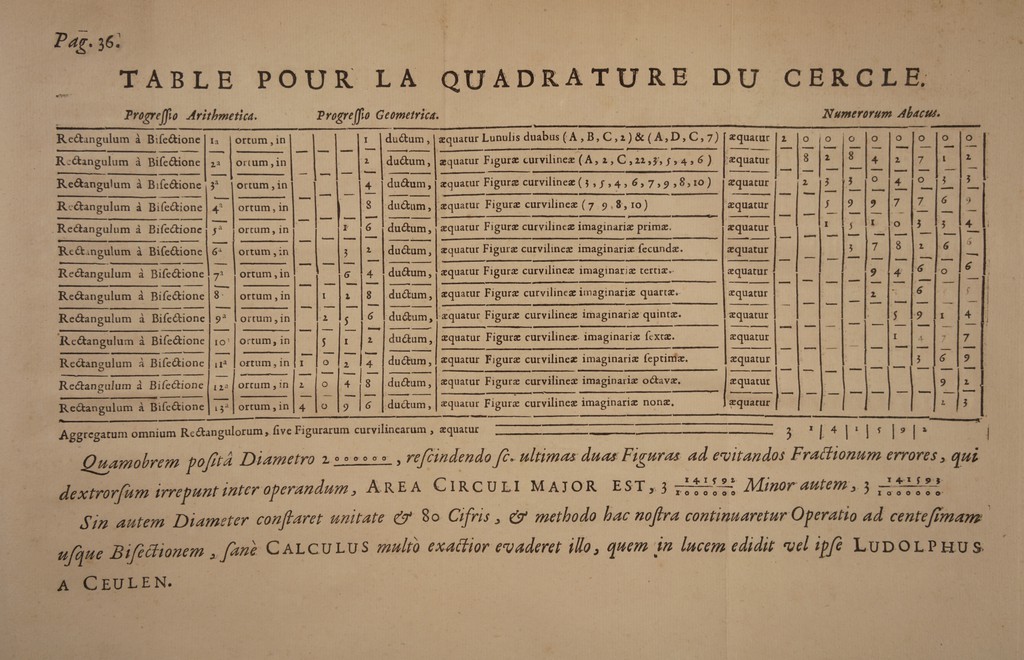 Pag. 36.
TABLE POUR LA QUADRATURE DU CERCLE.
Progreſſio Arithmetica. Progreſſio Geometrica. Numerorum Abacus.
Rectangulum à Biſectione 1a ortum, in 1 ductum, æquatur Lunulis duabus (A, B, C, 2) & (A, D, C, 7) æquatur 2 0 0 0 0 0 0 0 0
Rectangulum à Biſectione 2a ortum, in 2 ductum, æquatur Figuræ curvilineæ (A, 2, C, 22, 3, 5, 4, 6) æquatur 8 2 8 4 2 7 1 2
Rectangulum à Biſectione 3a ortum, in 4 ductum, æquatur Figuræ curvilineæ (3, 5, 4, 6, 7, 9, 8, 10) æquatur 2 3 3 0 4 0 3 3
Rectangulum à Biſectione 4a ortum, in 8 ductum, æquatur Figuræ curvilineæ (7 9, 8, 10) æquatur 5 9 9 7 7 6 9
Rectangulum à Biſectione 5a ortum, in 1 6 ductum, æquatur Figuræ curvilineæ imaginariæ primæ. æquatur 1 5 1 0 3 3 4
Rectangulum à Biſectione 6a ortum, in 3 2 ductum, æquatur Figuræ curvilineæ imaginariæ ſecundæ. æquatur 3 7 8 2 6 6
Rectangulum à Biſectione 7a ortum, in 6 4 ductum, æquatur Figuræ curvilineæ imaginariæ tertiæ. æquatur 9 4 6 0 6
Rectangulum à Biſectione 8 ortum, in 1 2 8 ductum, æquatur Figuræ curvilineæ imaginariæ quartæ. æquatur 2 6
Rectangulum à Biſectione 9a ortum, in 2 5 6 ductum, æquatur Figuræ curvilineæ imaginariæ quintæ. æquatur 5 9 1 4
Rectangulum à Biſectione 10 ortum, in 5 1 2 ductum, æquatur Figuræ curvilineæ imaginariæ ſextæ. æquatur 1 4 7 7
Rectangulum à Biſectione 11a ortum, in 1 0 2 4 ductum, æquatur Figuræ curvilineæ imaginariæ ſeptimæ. æquatur 3 6 9
Rectangulum à Biſectione 12a ortum, in 2 0 4 8 ductum, æquatur Figuræ curvilineæ imaginariæ octavæ. æquatur 9 2
Rectangulum à Biſectione 13a ortum, in 4 0 9 6 ductum, æquatur Figuræ curvilineæ imaginariæ nonæ. æquatur 2 3
Aggregatum omnium Rectangulorum, ſive Figurarum curvilinearum, æquatur 3 1 | 4 | 1 | 5 | 9 | 2
Quamobrem poſitâ Diametro 2 000000, reſcindendo ſc. ultimas duas Figuras ad evitandos Fractionum errores, qui
dextrorſum irrepunt inter operandum, AREA CIRCULI MAJOR EST, 3 141592/1000000 Minor autem, 3 141593/1000000.
Sin autem Diameter conſtaret unitate & 80 Cifris, & methodo hac noſtra continuaretur Operatio ad centeſimam
uſque Biſectionem, ſanè CALCULUS multò exactior evaderet illo, quem in lucem edidit vel ipſe LUDOLPHUS
A CEULEN.